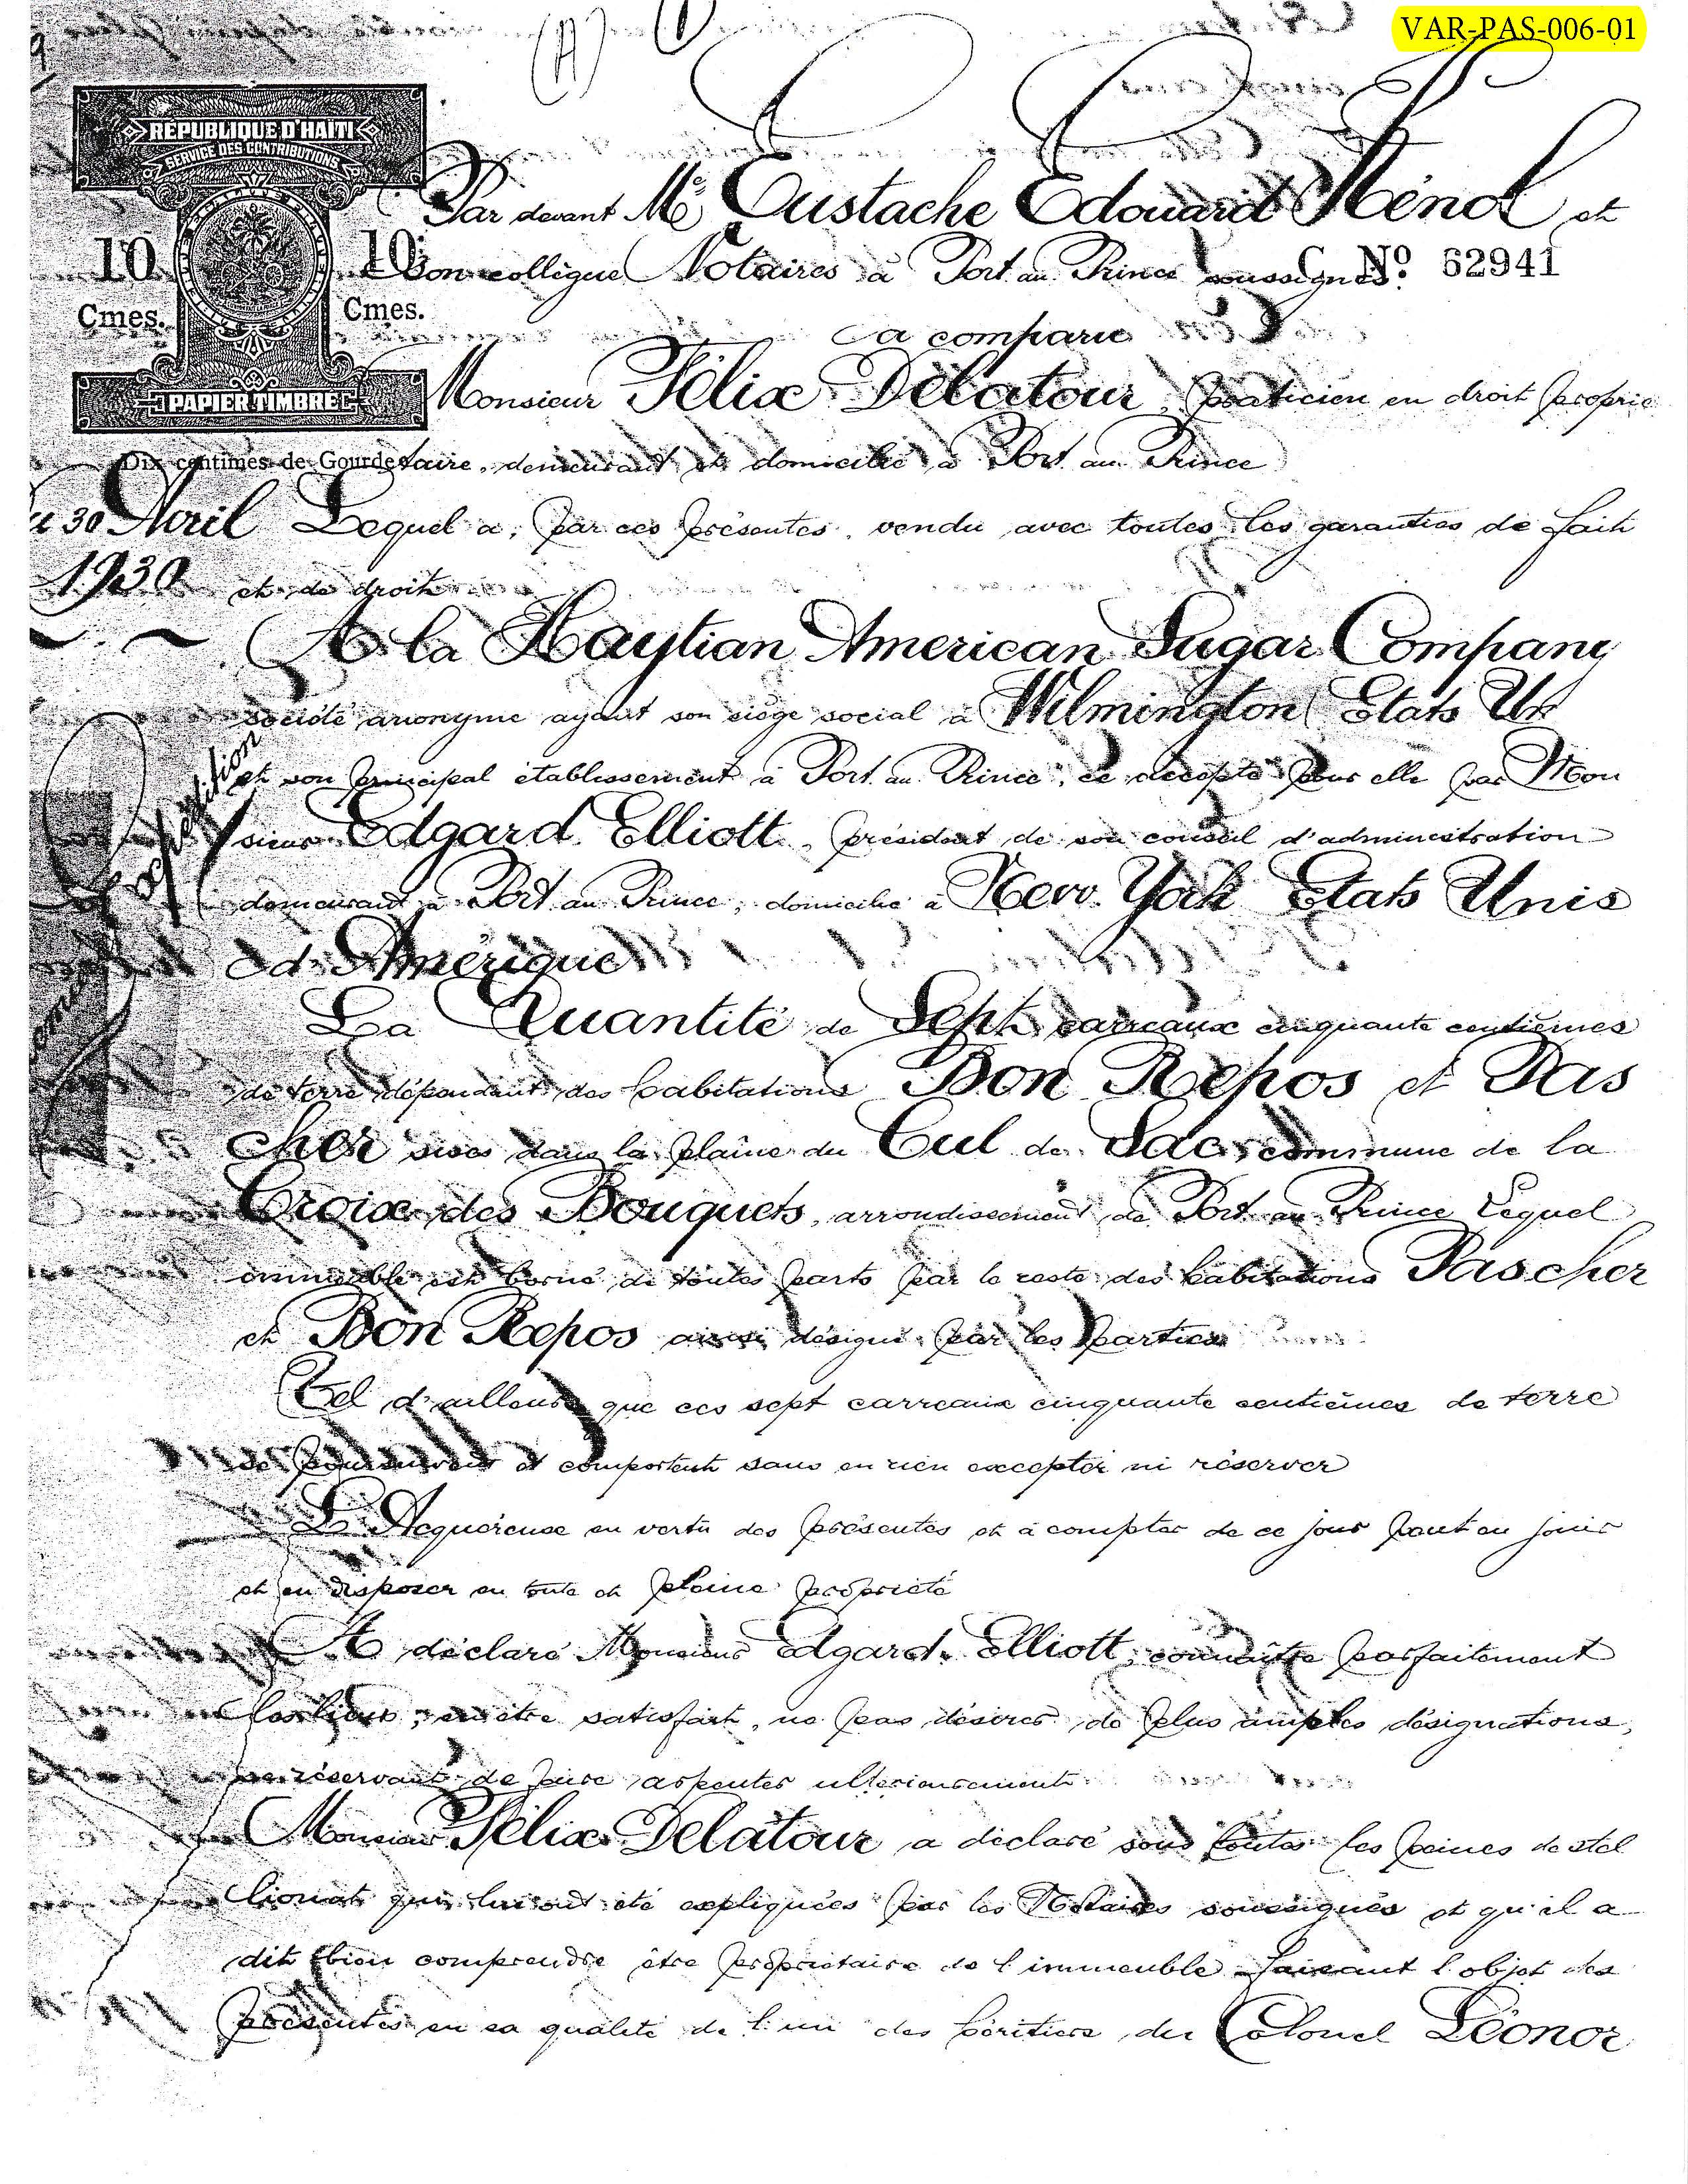 VAR-PAS-006-01
(A)
RÉPUBLIQUE D'HAÏTI
SERVICE DES CONTRIBUTIONS
10 10
Cmes. Cmes.
PAPIER TIMBRE
Dix centimes de Gourde
C Nº 62941
Par devant Me Eustache Edouard Hénol et
son collègue Notaires à Port au Prince soussignés.
a comparu
Monsieur Félix Délatour, praticien en droit proprié
taire, demeurant et domicilié à Port au Prince
30 Avril
1930
Lequel a, par ces présentes, vendu avec toutes les garanties de fait
et de droit
A la Haytian American Sugar Company
société anonyme ayant son siège social à Wilmington Etats Un
et son principal établissement à Port au Prince, ce accepté pour elle par Mon
sieur Edgard Elliott, président de son conseil d'administration
demeurant à Port au Prince, domicilié à New York Etats Unis
d'Amérique
La Quantité de Sept carreaux cinquante centièmes
de terre dépendant des habitations Bon Repos et Pas
cher sises dans la plaine du Cul de Sac, commune de la
Croix des Bouquets, arrondissement de Port au Prince Lequel
immeuble est borné de toutes parts par le reste des habitations Pascher
et Bon Repos ainsi désigné par les parties
Tel d'ailleurs que ces sept carreaux cinquante centièmes de terre
se poursuivent et comportent sans en rien excepter ni réserver
L'Acquéreuse en vertu des présentes et à compter de ce jour peut en jouir
et en disposer en toute et pleine propriété
A déclaré Monsieur Edgard Elliott, connaître parfaitement
les lieux, en être satisfait, ne pas désirer de plus amples désignations,
se réservant de faire arpenter ultérieurement
Monsieur Félix Delatour a déclaré sous toutes les peines de stel
lionat qui lui ont été expliquées par les Notaires soussignés et qu'il a
dit bien comprendre être propriétaire de l'immeuble faisant l'objet des
présentes en sa qualité de l'un des héritiers du Colonel Léonor